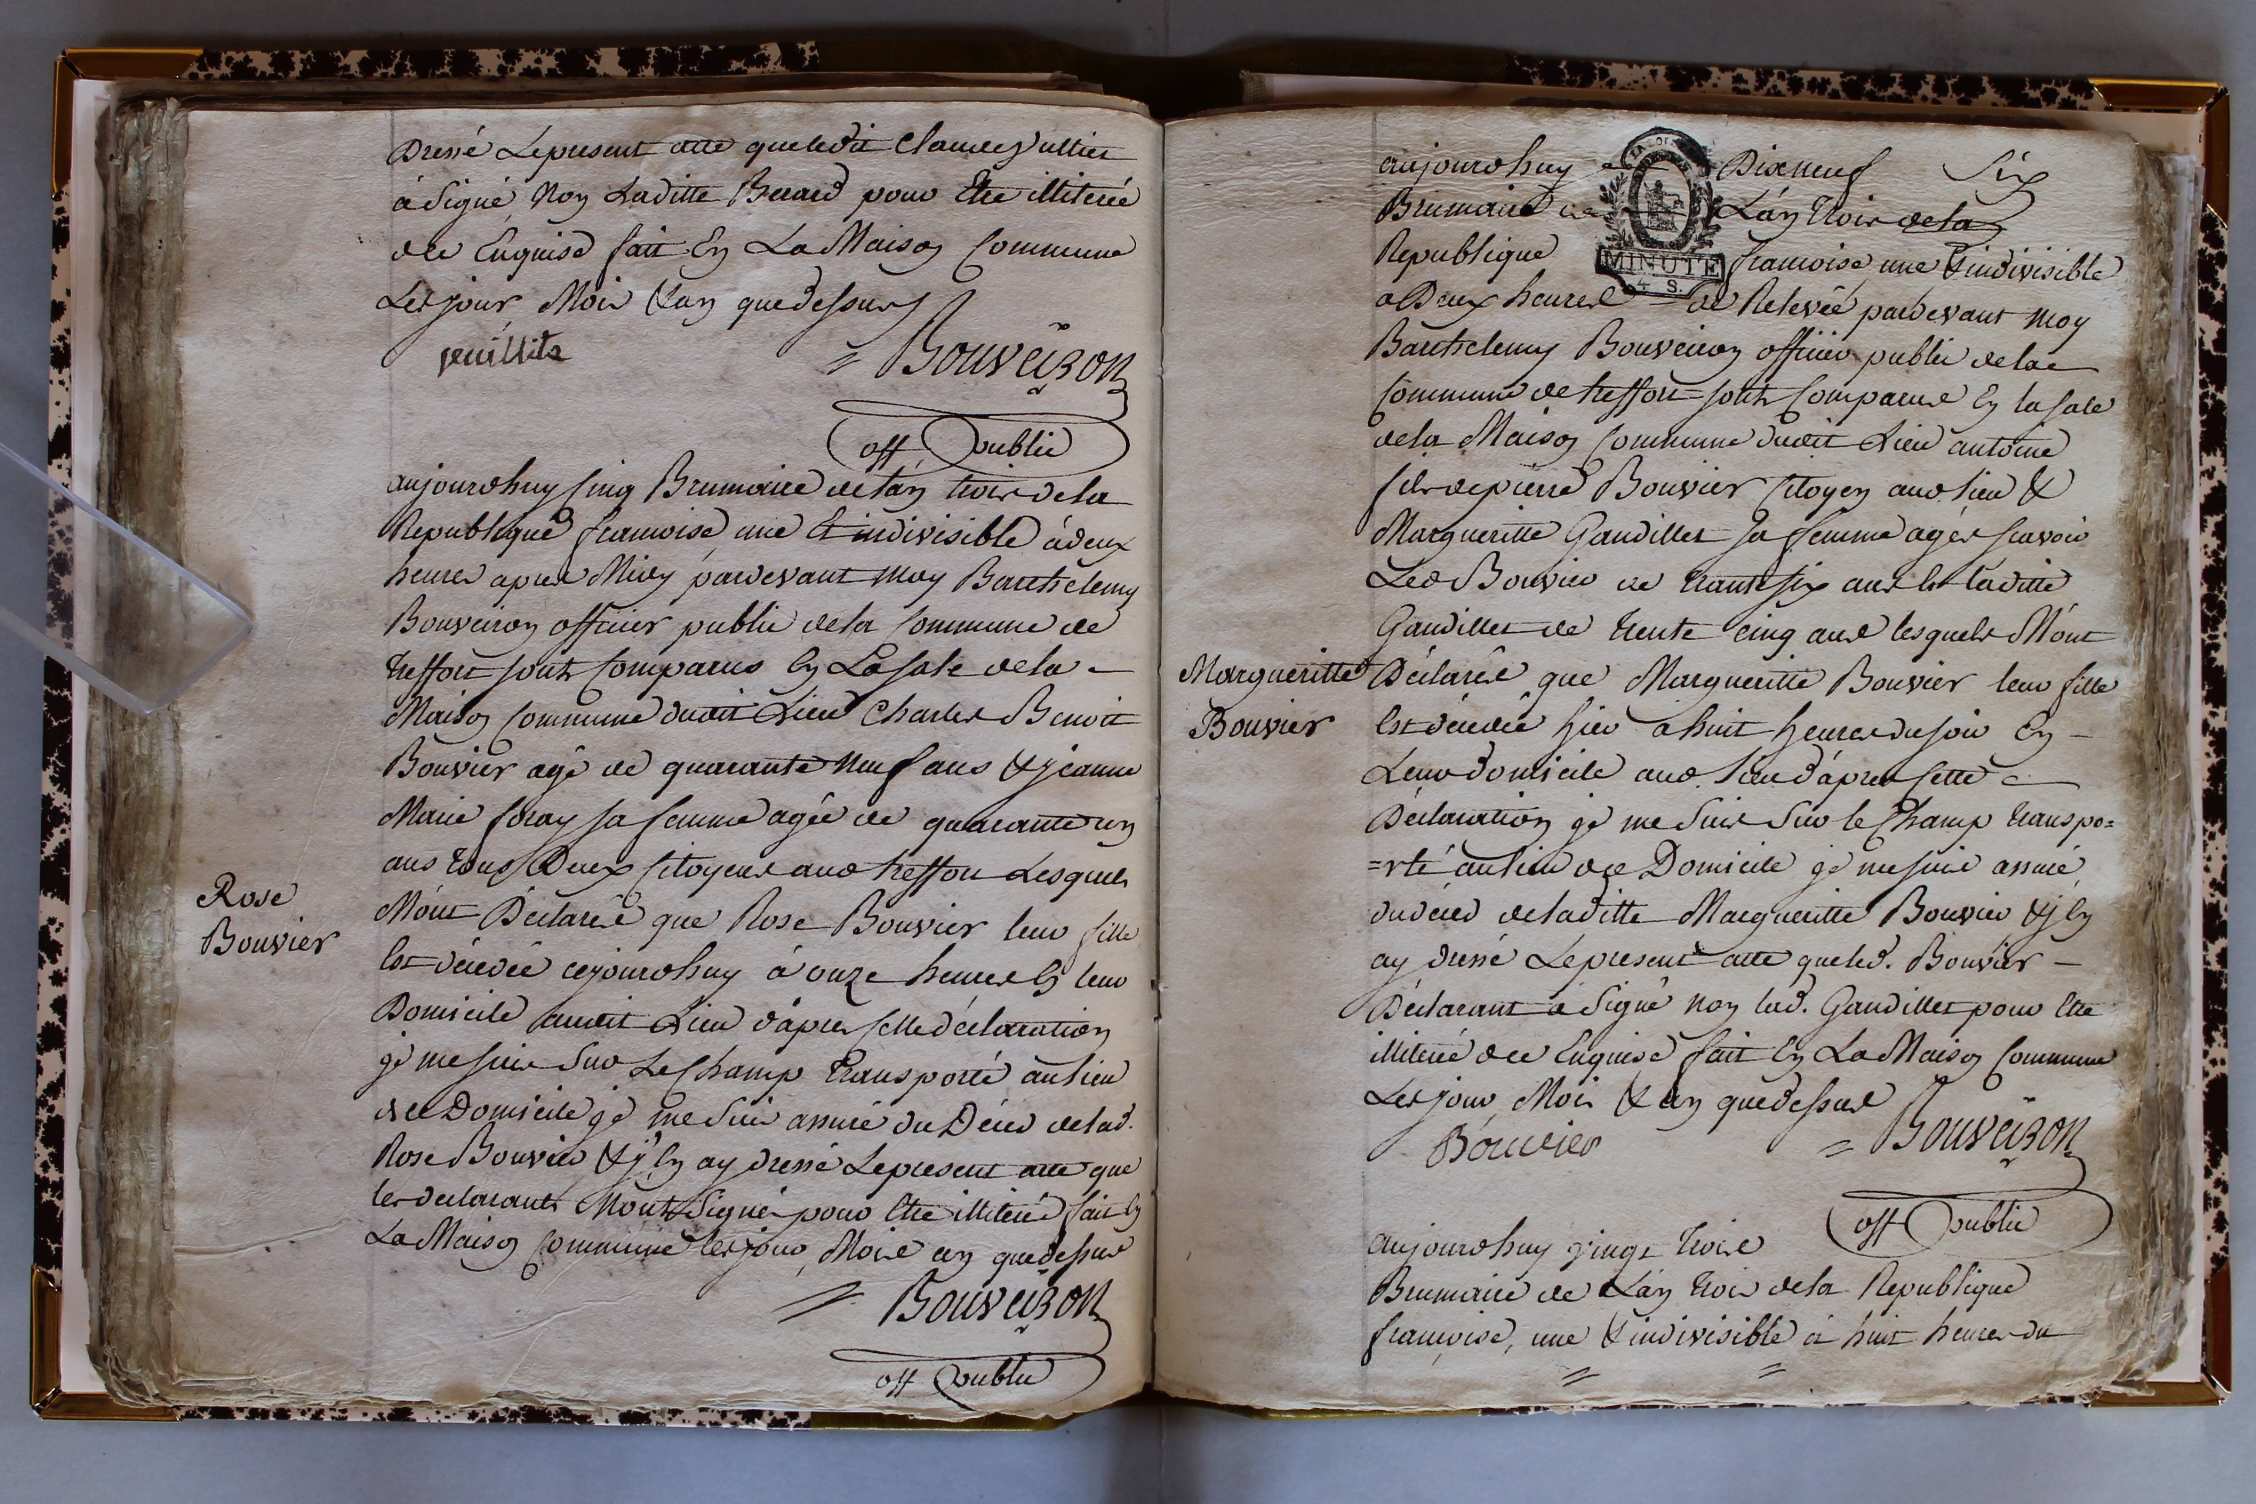 Dressé Lepresent atte queledit Claude Vullier
à Signé Non Laditte Berard pour Etre illiterée
de Enquise fait En La Maison Commune
Les jour Mois & an que dessus
vuillite
= Bouveiron
off public
aujourdhuy Cinq Brumaire de lán trois dela
Republique francoise une Et indivisible á deux
heures apres Midy pardevant Moy Barthelemy
Bouveiron officier public dela Commune de
treffort sont Comparus En La Sale dela
Maison Commune dudit Lieu Charles Benoit
Bouvier agé de quarante Neuf ans & jeanne
Marie foray sa femme agée de quarante un
ans tous Deux Citoyens aud treffort Lesquels
Rose
Bouvier
Mónt Déclarés que Rose Bouvier leur fille
Est décedée cejourdhuy á onze heures En leur
Domicile audit Lieu dápres Cette déclaration
gé me suis Sur Le Champ Transporté au lieu
de Domicile gé me Suis assuré du Déces delad.
Rose Bouvier & j'En ay dressé Lepresent atte que
les declarants Nónt Signés pour Etre illiteré fait En
La Maison Commune les jour, Mois an que dessus
= Bouveiron
off public
aujourdhuy Dixneuf Six
Brumaire de Lán trois dela
LA LOI
MINUTE
4 S.
Republique francoise une & indivisible
a Deux heures de Relevée pardevant Moy
Barthelemy Bouveiron officier public dela
Commune de treffort sont Comparus En la Sale
dela Maison Commune dudit Lieu antoine
fils de pierre Bouvier Citoyen aud. lieu &
Margueritte Gaudillet sa femme agés scavoir
Led Bouvier de trante six ans Et laditte
Gaudillet de trente cinq ans lesquels Mónt
Margueritte
Bouvier
Déclarés que Margueritte Bouvier leur fille
Est décedée hier a huit heures du soir En
Leur domicile aud. lieu dápres Cette
Déclaration gé me Suis Sur le Champ transpo=
=rté au lieu de Domicile gé me suis assuré
du déces de laditte Margueritte Bouvier & j'En
ay dressé Lepresent atte que led. Bouvier
Déclarant á Signé Non lad. Gaudillet pour Etre
illiterée de Enquise fait En La Maison Commune
Les jour, Mois & an que dessus
Bouvier
= Bouveiron
off public
aujourdhuy vingt trois
Brumaire de Lán trois dela Republique
françoise, une & indivisible á huit heures du